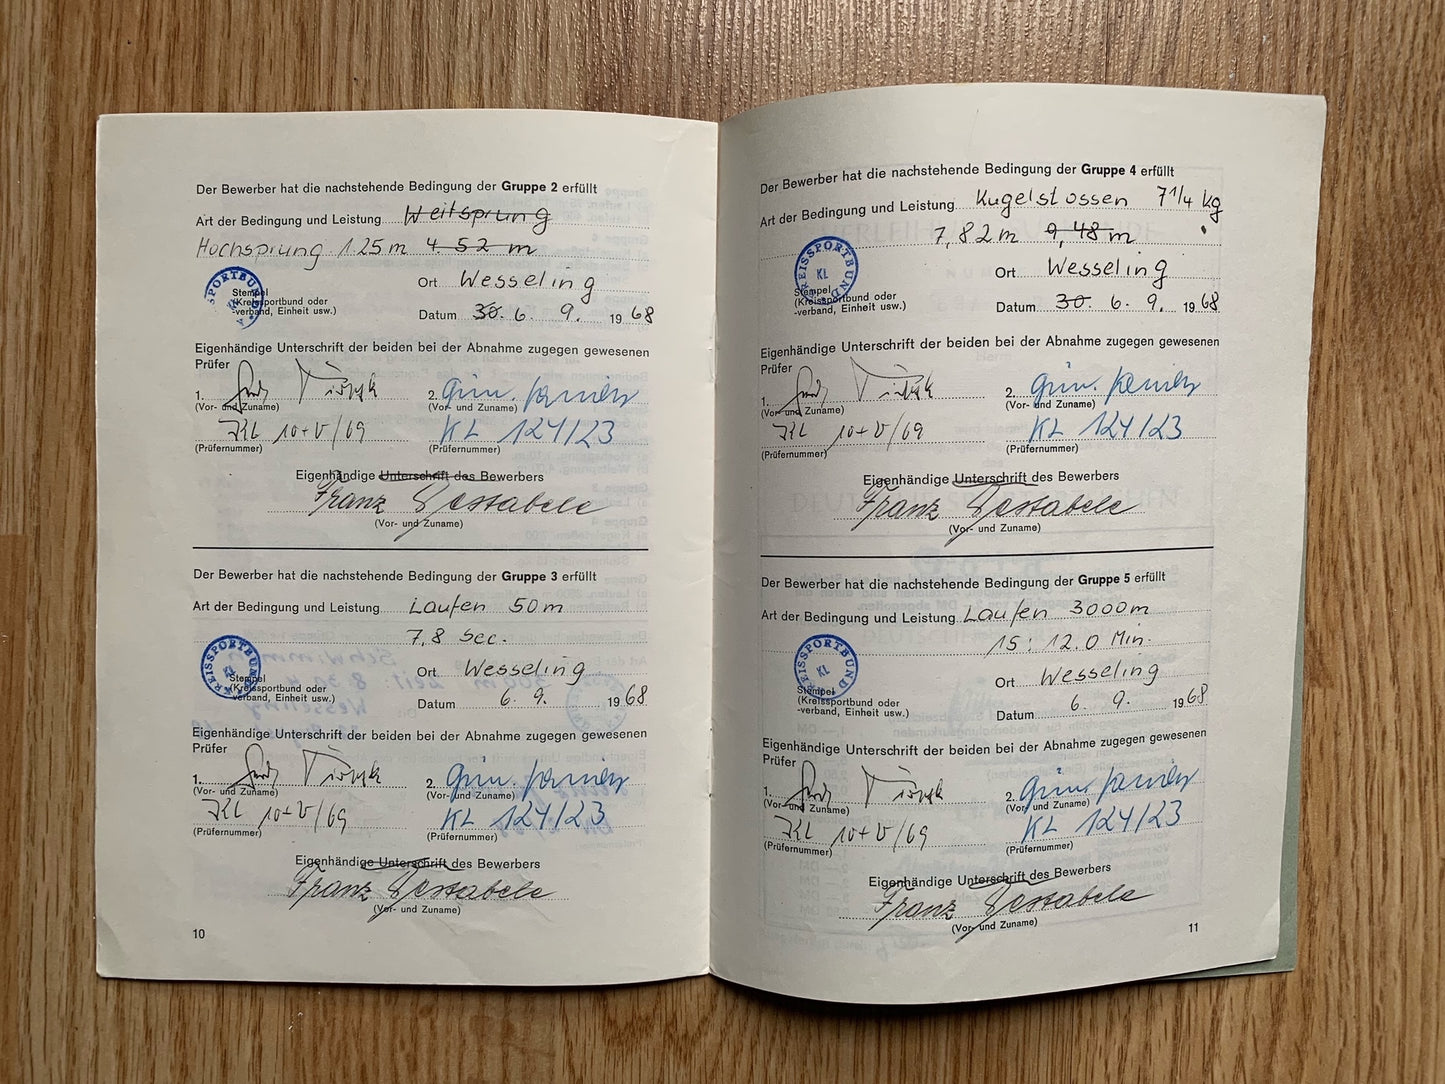 Der Bewerber hat die nachstehende Bedingung der Gruppe 2 erfüllt
Art der Bedingung und Leistung Weitsprung
Hochsprung 1.25 m 4 52 m
Ort Wesseling
Stempel
(Kreissportbund oder
-verband, Einheit usw.)
SPORTBU
Datum 30. 6. 9. 1968
Eigenhändige Unterschrift der beiden bei der Abnahme zugegen gewesenen
Prüfer
1.
2.
(Vor- und Zuname)
(Vor- und Zuname)
KL 124/23
(Prüfernummer)
(Prüfernummer)
Eigenhändige Unterschrift des Bewerbers
Franz
(Vor- und Zuname)
Der Bewerber hat die nachstehende Bedingung der Gruppe 3 erfüllt
Art der Bedingung und Leistung Laufen 50 m
7,8 Sec.
KREISSPORTBUND
KL
Ort Wesseling
Stempel
(Kreissportbund oder
-verband, Einheit usw.)
Datum 6. 9. 1968
Eigenhändige Unterschrift der beiden bei der Abnahme zugegen gewesenen
Prüfer
1.
2.
(Vor- und Zuname)
(Vor- und Zuname)
KL 124/23
(Prüfernummer)
(Prüfernummer)
Eigenhändige Unterschrift des Bewerbers
Franz
(Vor- und Zuname)
10
Der Bewerber hat die nachstehende Bedingung der Gruppe 4 erfüllt
Art der Bedingung und Leistung Kugelstossen 7 1/4 kg
7,82 m 9,48 m
KREISSPORTBUND
KL
Ort Wesseling
Stempel
(Kreissportbund oder
-verband, Einheit usw.)
Datum 30. 6. 9. 1968
Eigenhändige Unterschrift der beiden bei der Abnahme zugegen gewesenen
Prüfer
1.
2.
(Vor- und Zuname)
(Vor- und Zuname)
KL 124/23
(Prüfernummer)
(Prüfernummer)
Eigenhändige Unterschrift des Bewerbers
Franz
(Vor- und Zuname)
Der Bewerber hat die nachstehende Bedingung der Gruppe 5 erfüllt
Art der Bedingung und Leistung Laufen 3000 m
15:12.0 Min.
KREISSPORTBUND
KL
Ort Wesseling
Stempel
(Kreissportbund oder
-verband, Einheit usw.)
Datum 6. 9. 1968
Eigenhändige Unterschrift der beiden bei der Abnahme zugegen gewesenen
Prüfer
1.
2.
(Vor- und Zuname)
(Vor- und Zuname)
KL 124/23
(Prüfernummer)
(Prüfernummer)
Eigenhändige Unterschrift des Bewerbers
Franz
(Vor- und Zuname)
11